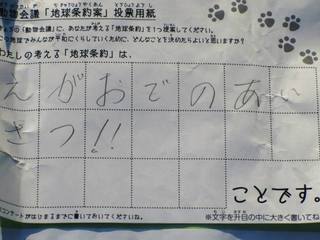 動物会議「地球条約案」投票用紙
の「動物会議」に、あなたが考える「地球条約」を1つ提案してください。
地球でみんなが平和にくらしていくために、どんなことを決めたらよいと思いますか?
わたしの考える「地球条約」は、
えがおでのあい
さつ!!
ことです。
コンサートがはじまるまでに書いておいてくださいね。
※文字を升目の中に大きく書いてね